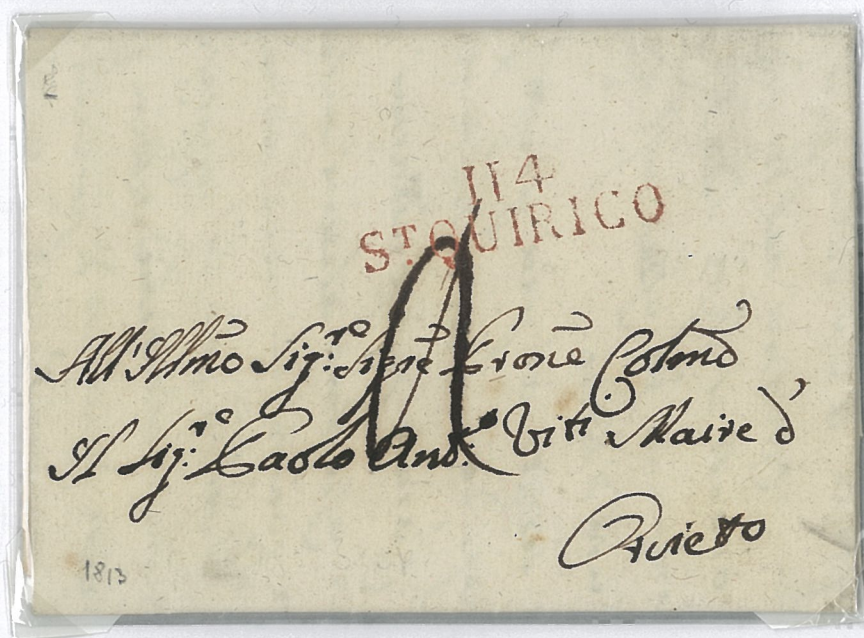 114
St. QUIRICO
All'Illmo Sig:re Sigre Prone Colmo
Il Sig:re Paolo Ant.o Viti Maire d'
Orvieto
1813